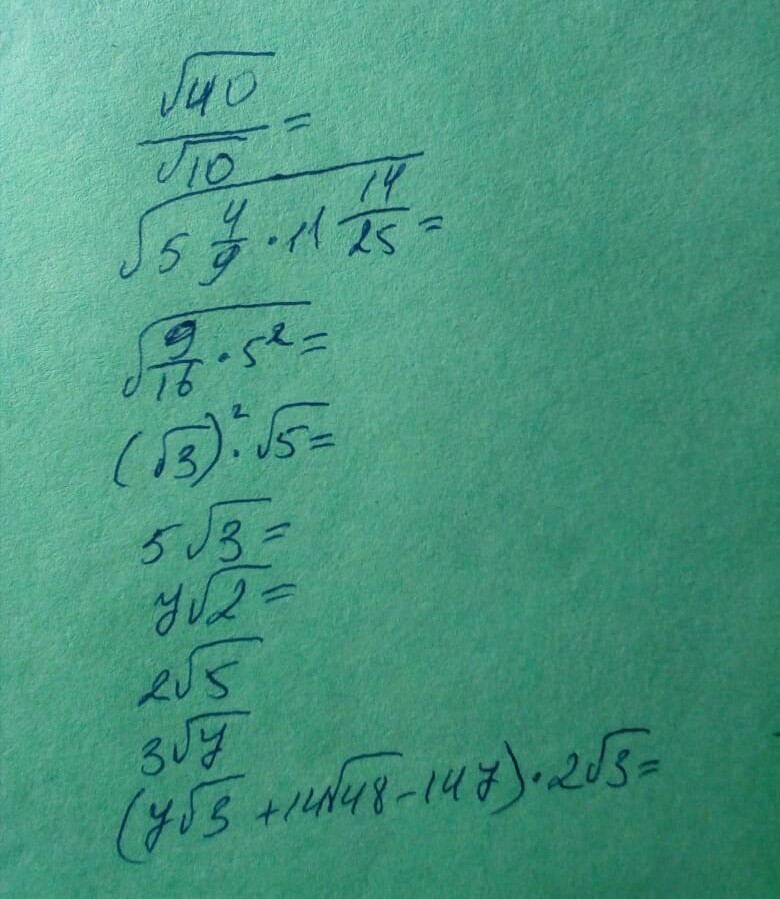 √40/√10 =
√(5 4/9 · 11 14/25) =
√(9/16 · 5²) =
(√3)² · √5 =
5√3 =
y√2 =
2√5
3√y
(y√3 + 14√48 - 14y) · 2√3 =